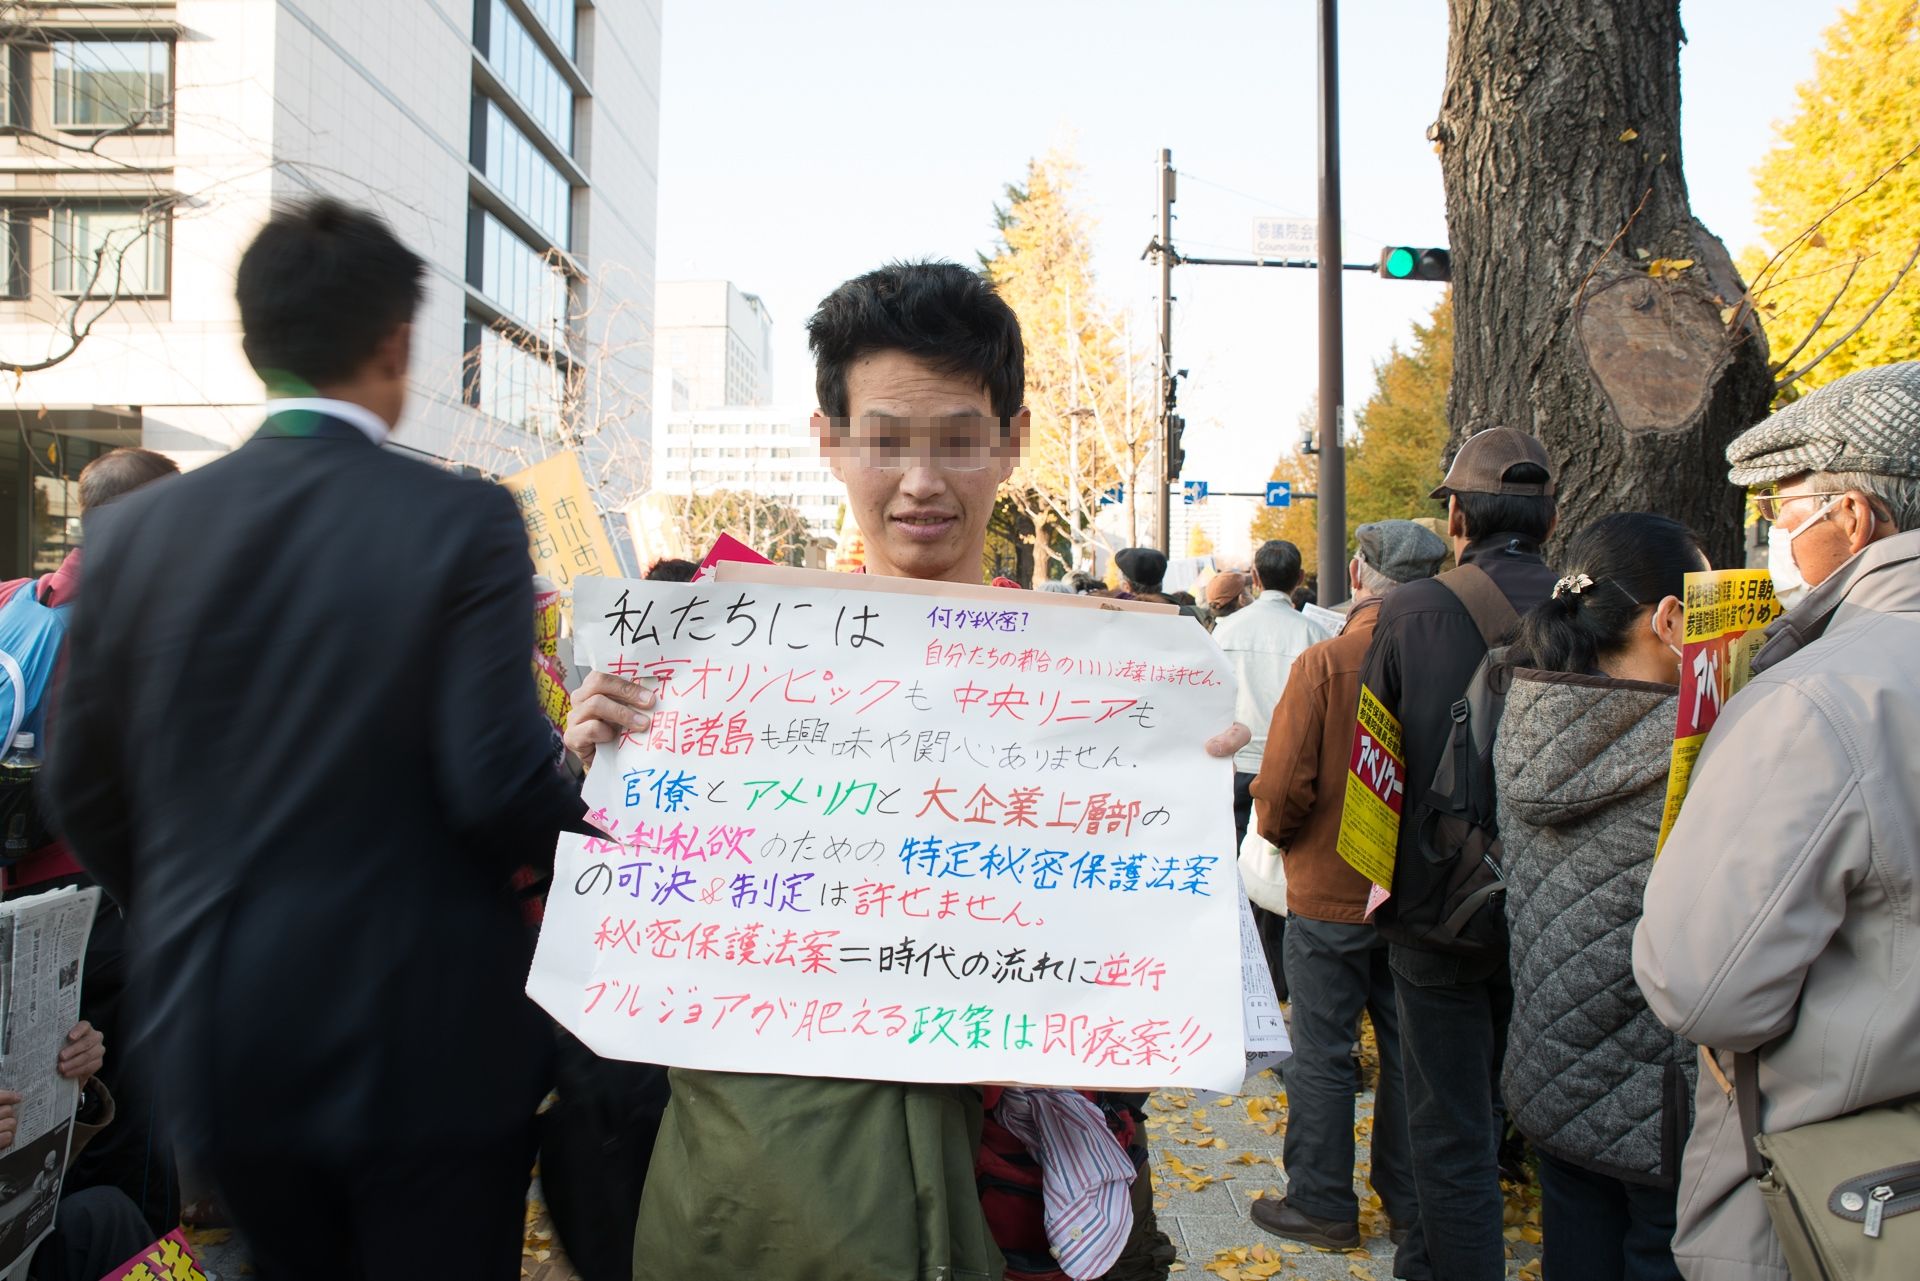 私たちには
何が秘密?
自分たちの都合のいい法案は許せん。
東京オリンピックも中央リニアも
尖閣諸島も興味や関心ありません.
官僚とアメリカと大企業上層部の
私利私欲のための特定秘密保護法案
の可決&制定は許せません。
秘密保護法案=時代の流れに逆行
ブルジョアが肥える政策は即廃案!!
参議院会
Councillors
市川市
アベノ
アベノ